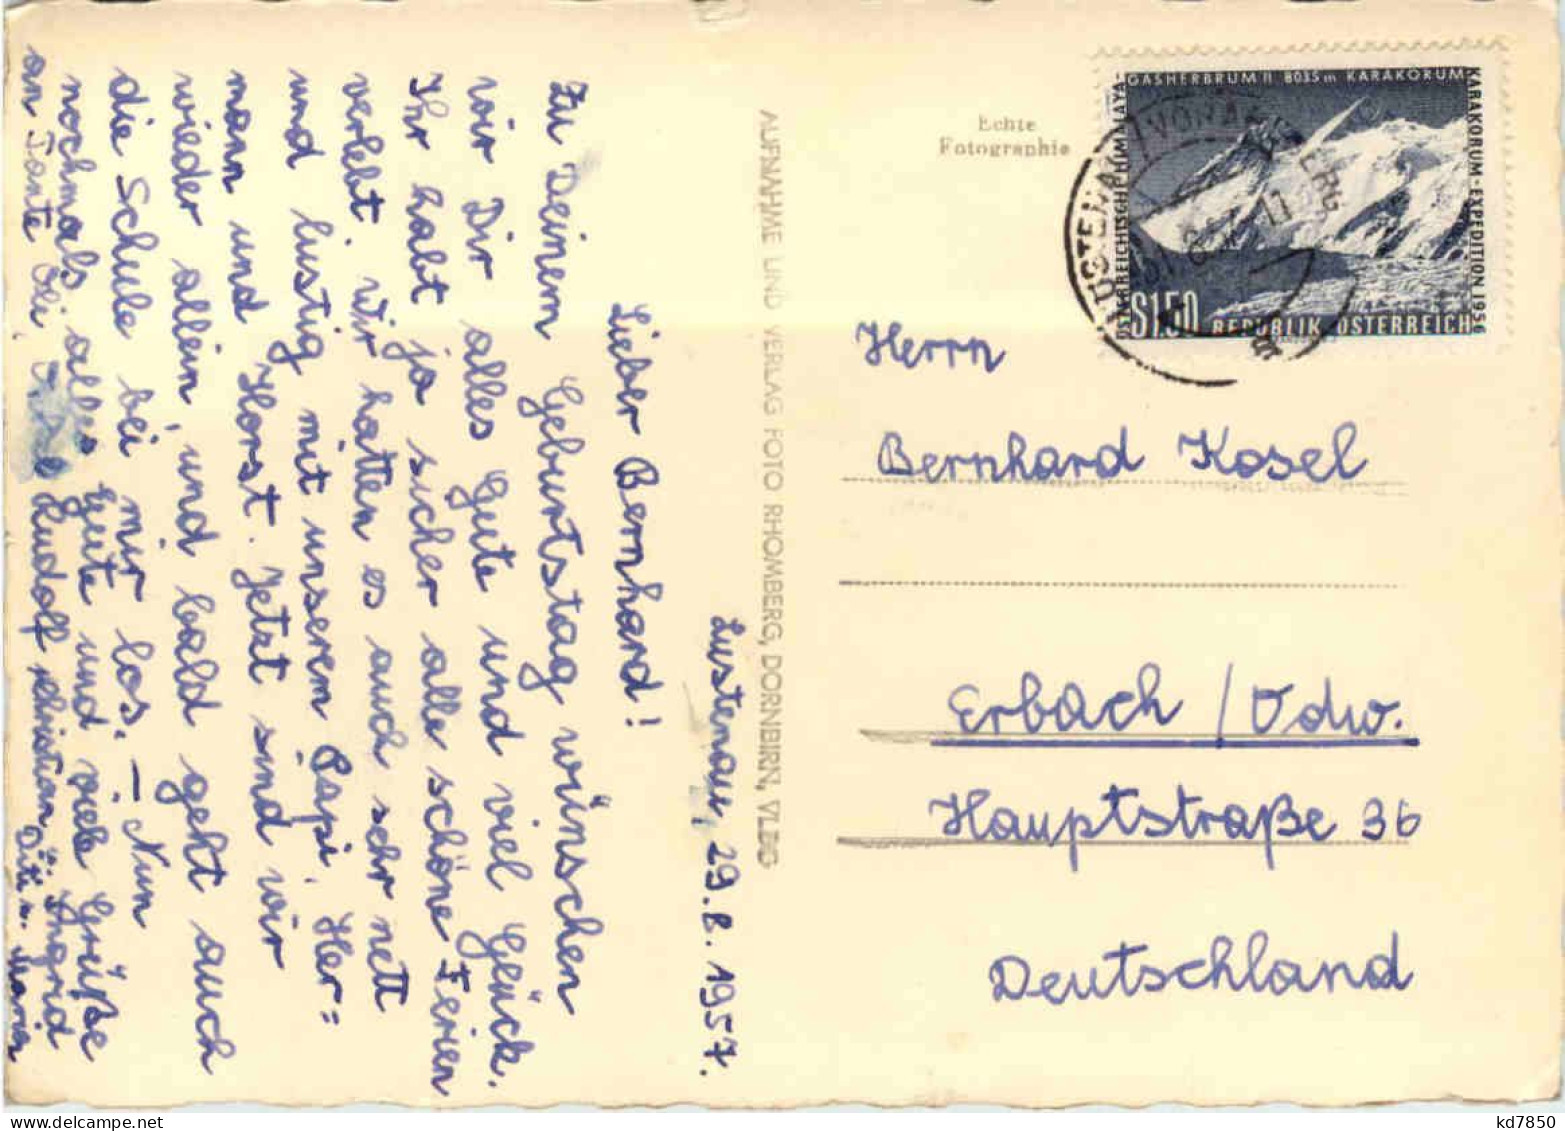 Lustenau, 29.8.1957.
Lieber Bernhard!
Zu Deinem Geburtstag wünschen
wir Dir alles Gute und viel Glück.
Ihr habt ja sicher alle schöne Ferien
verlebt. Wir hatten es auch sehr nett
und lustig mit unserem Papi, Her=
mann und Horst. Jetzt sind wir
wieder allein, und bald geht auch
die Schule bei mir los. – Nun
nochmals alles Gute und viele Grüße
an Tante Oli, Rudolf Christian, Ingrid
u. Maria
AUFNAHME UND VERLAG FOTO RHOMBERG, DORNBIRN, VLBG
Echte
Fotographie
GASHERBRUM II 8035 m KARAKORUM
ÖSTERREICHISCHE HIMALAYA-
KARAKORUM-EXPEDITION 1956
S1.50 REPUBLIK ÖSTERREICH
LUSTENAU VORARLBERG
Herrn
Bernhard Kosel
Erbach / Odw.
Hauptstraße 36
Deutschland
kd7850